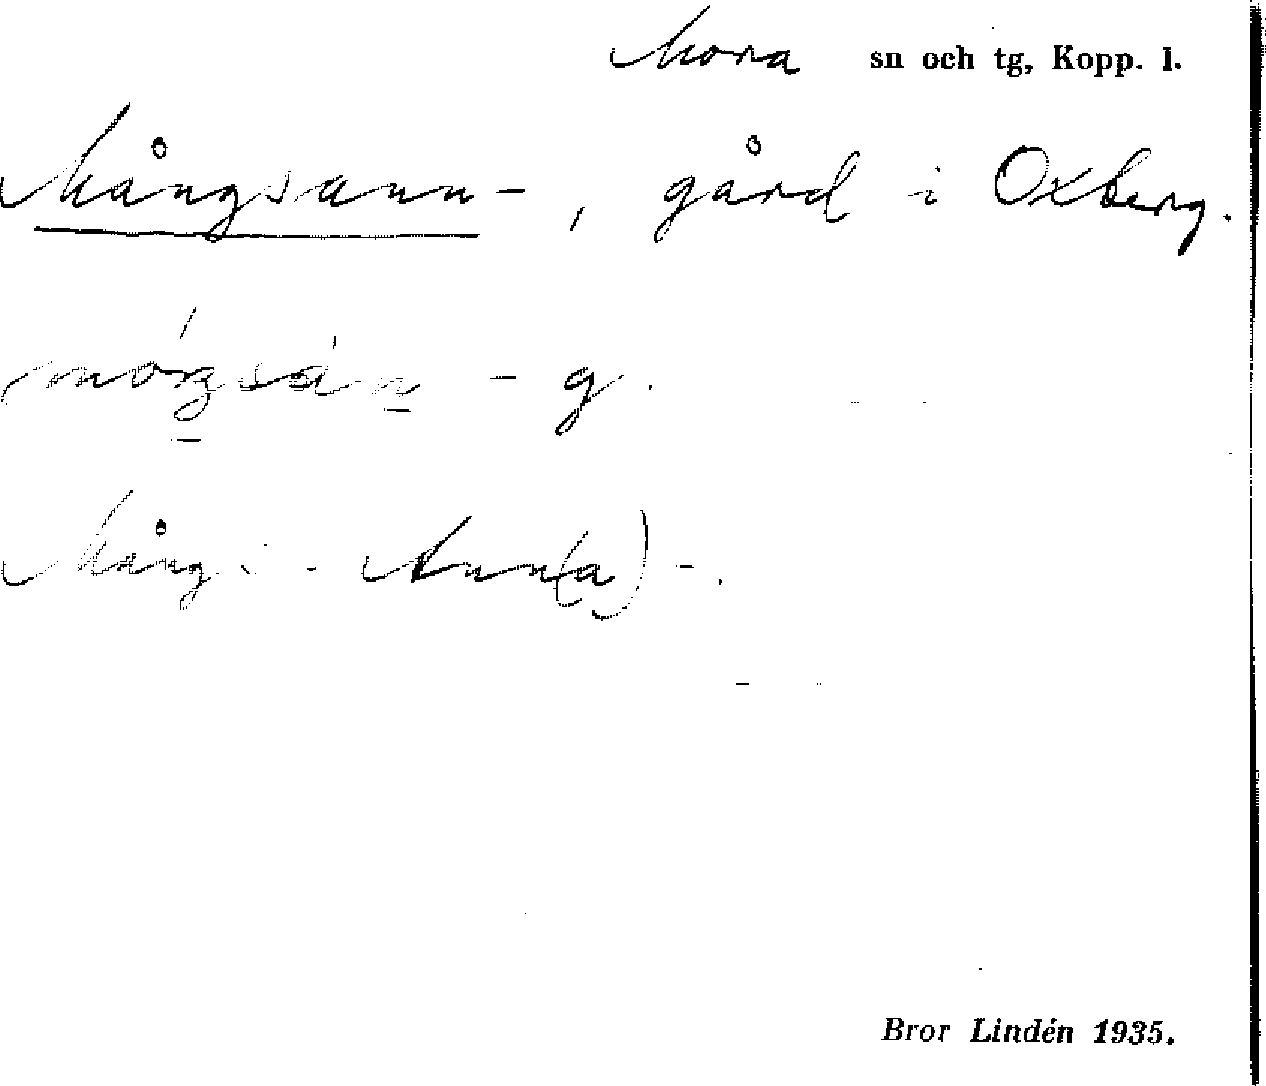 Mora sn och tg, Kopp. l.
Mångsann-, gård i Oxberg.
- g.
Mångs - Ann(a) -.
Bror Lindén 1935.